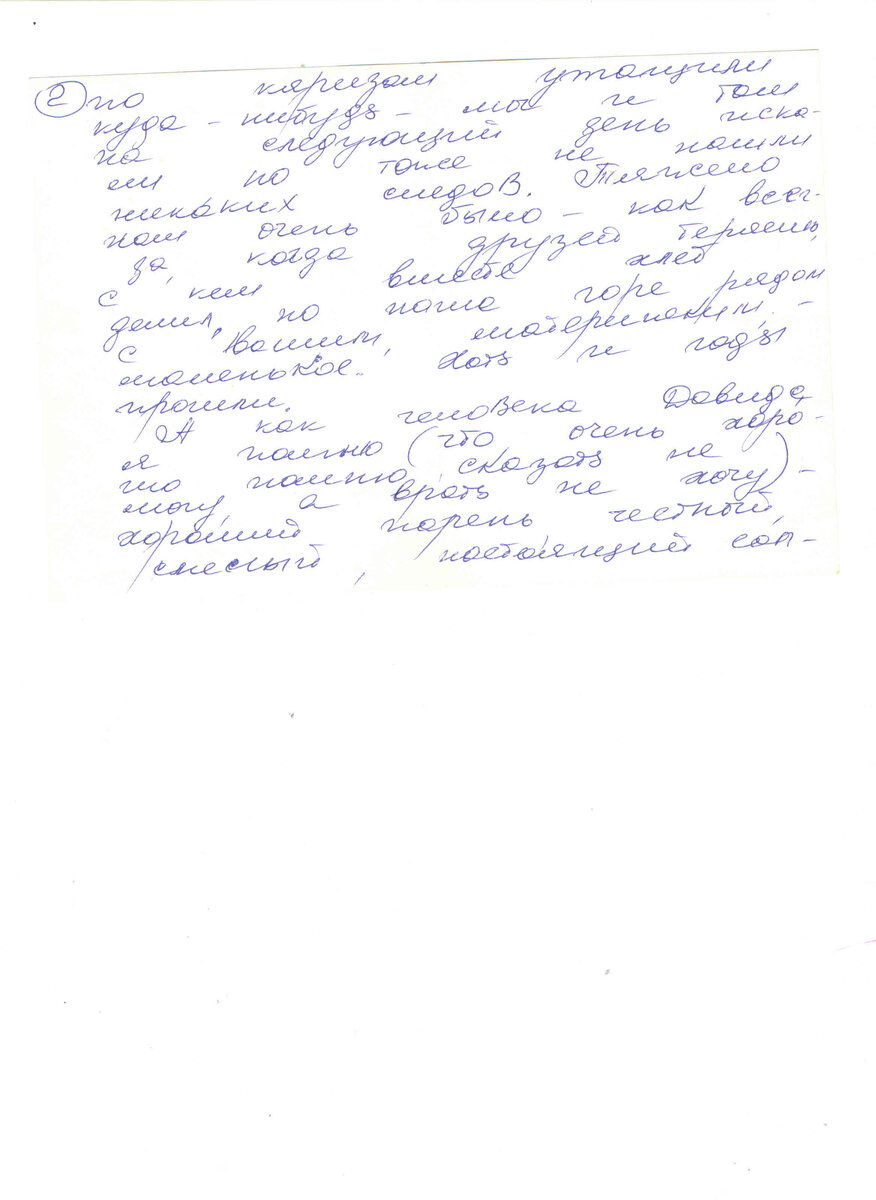 ② по кяризам утащили
куда-нибудь - мы и там
на следующий день иска-
ли но тоже не нашли
никаких следов. Тяжело
нам очень было - как всег-
да, когда друзей теряешь,
с кем вместе хлеб
делил, но наше горе рядом
с Вашим, материнским, -
маленькое. Хоть и годы
прошли.
А как человека Давида
я помню (что очень хоро-
шо помню, сказать не
могу, а врать не хочу) -
хороший парень честный,
смелый, настоящий сол-